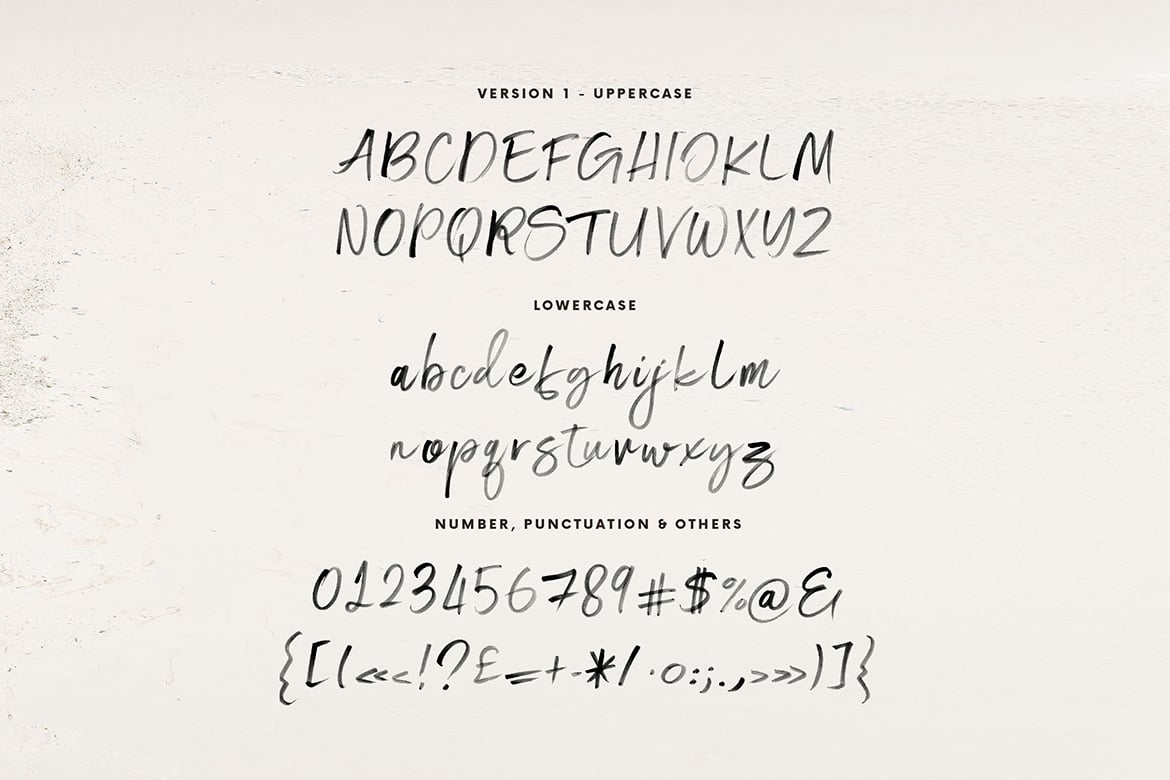 VERSION 1 - UPPERCASE
ABCDEFGHIJKLM
NOPQRSTUVWXYZ
LOWERCASE
abcdefghijklm
nopqrstuvwxyz
NUMBER, PUNCTUATION & OTHERS
0123456789#$%@&
{[(«‹!?£=+-*/·o:;.,»›)]}